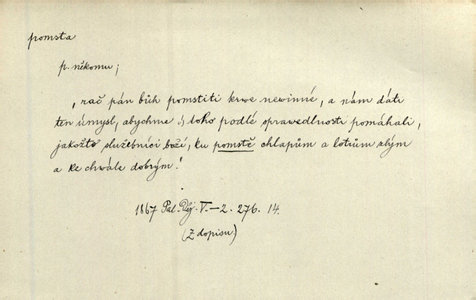 pomsta
p. někomu;
„rač pán bůh pomstiti krwe newinné, a nám dáti
ten úmysl, abychme j toho podlé sprawedlnosti pomáhali,
jakožto služebníci boží, ku pomstě chlapům a lotrům zlým
a ke chwále dobrým!
1867 Pal. Děj. V–2. 276. 14.
(Z dopisu)